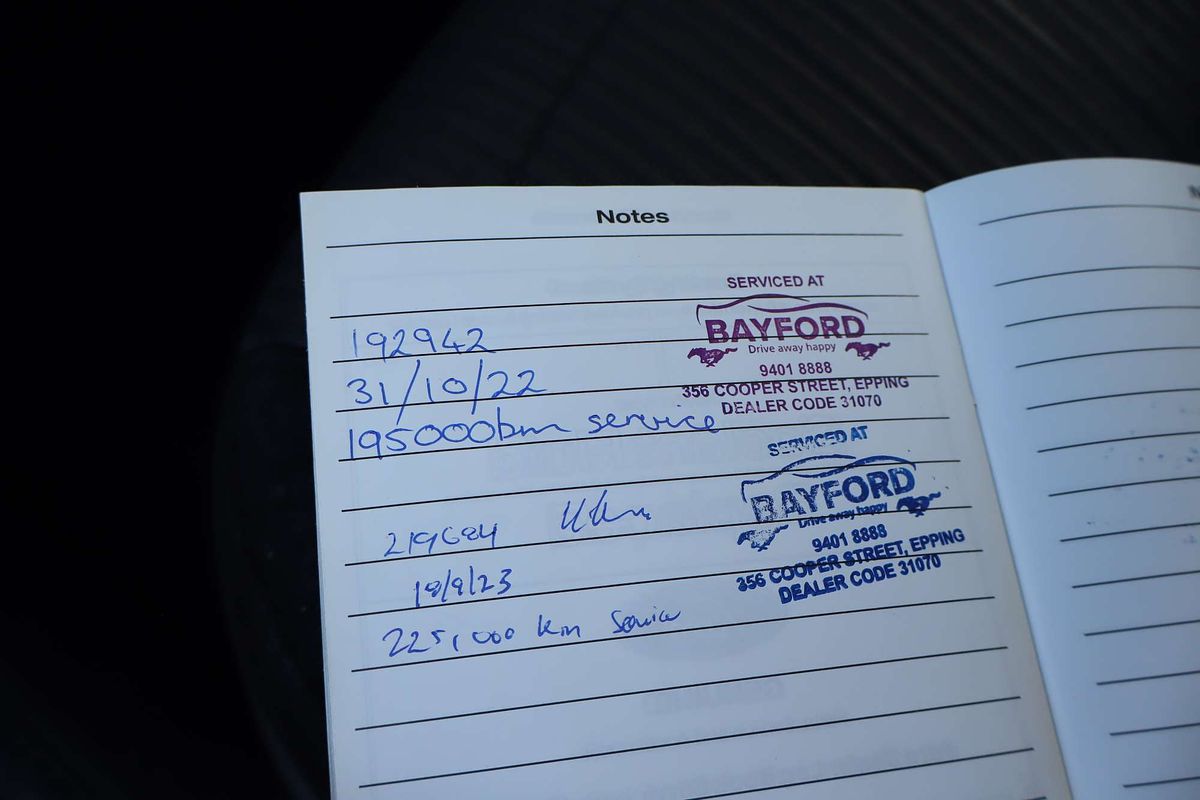 Notes
SERVICED AT
BAYFORD
Drive away happy
9401 8888
356 COOPER STREET, EPPING
DEALER CODE 31070
192942
31/10/22
195000km service
SERVICED AT
BAYFORD
Drive away happy
9401 8888
356 COOPER STREET, EPPING
DEALER CODE 31070
219684
18/9/23
225,000 km Service